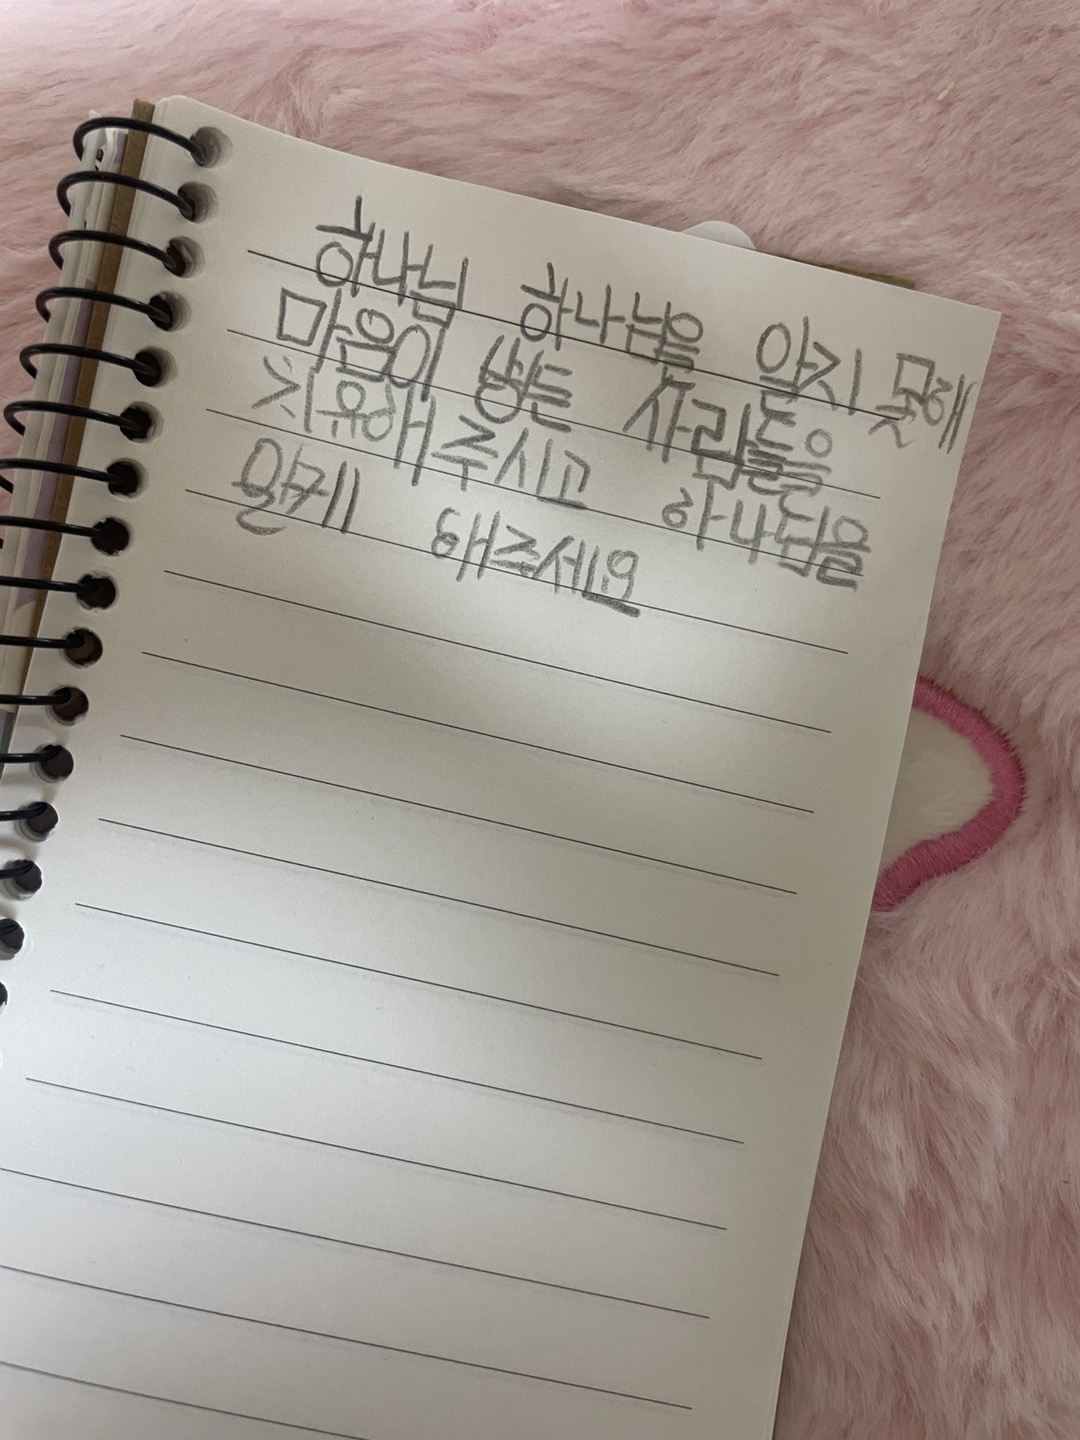 하나님 하나님을 알지 못해
마음이 병든 사람들을
치유해주시고 하나님을
알게 해주세요